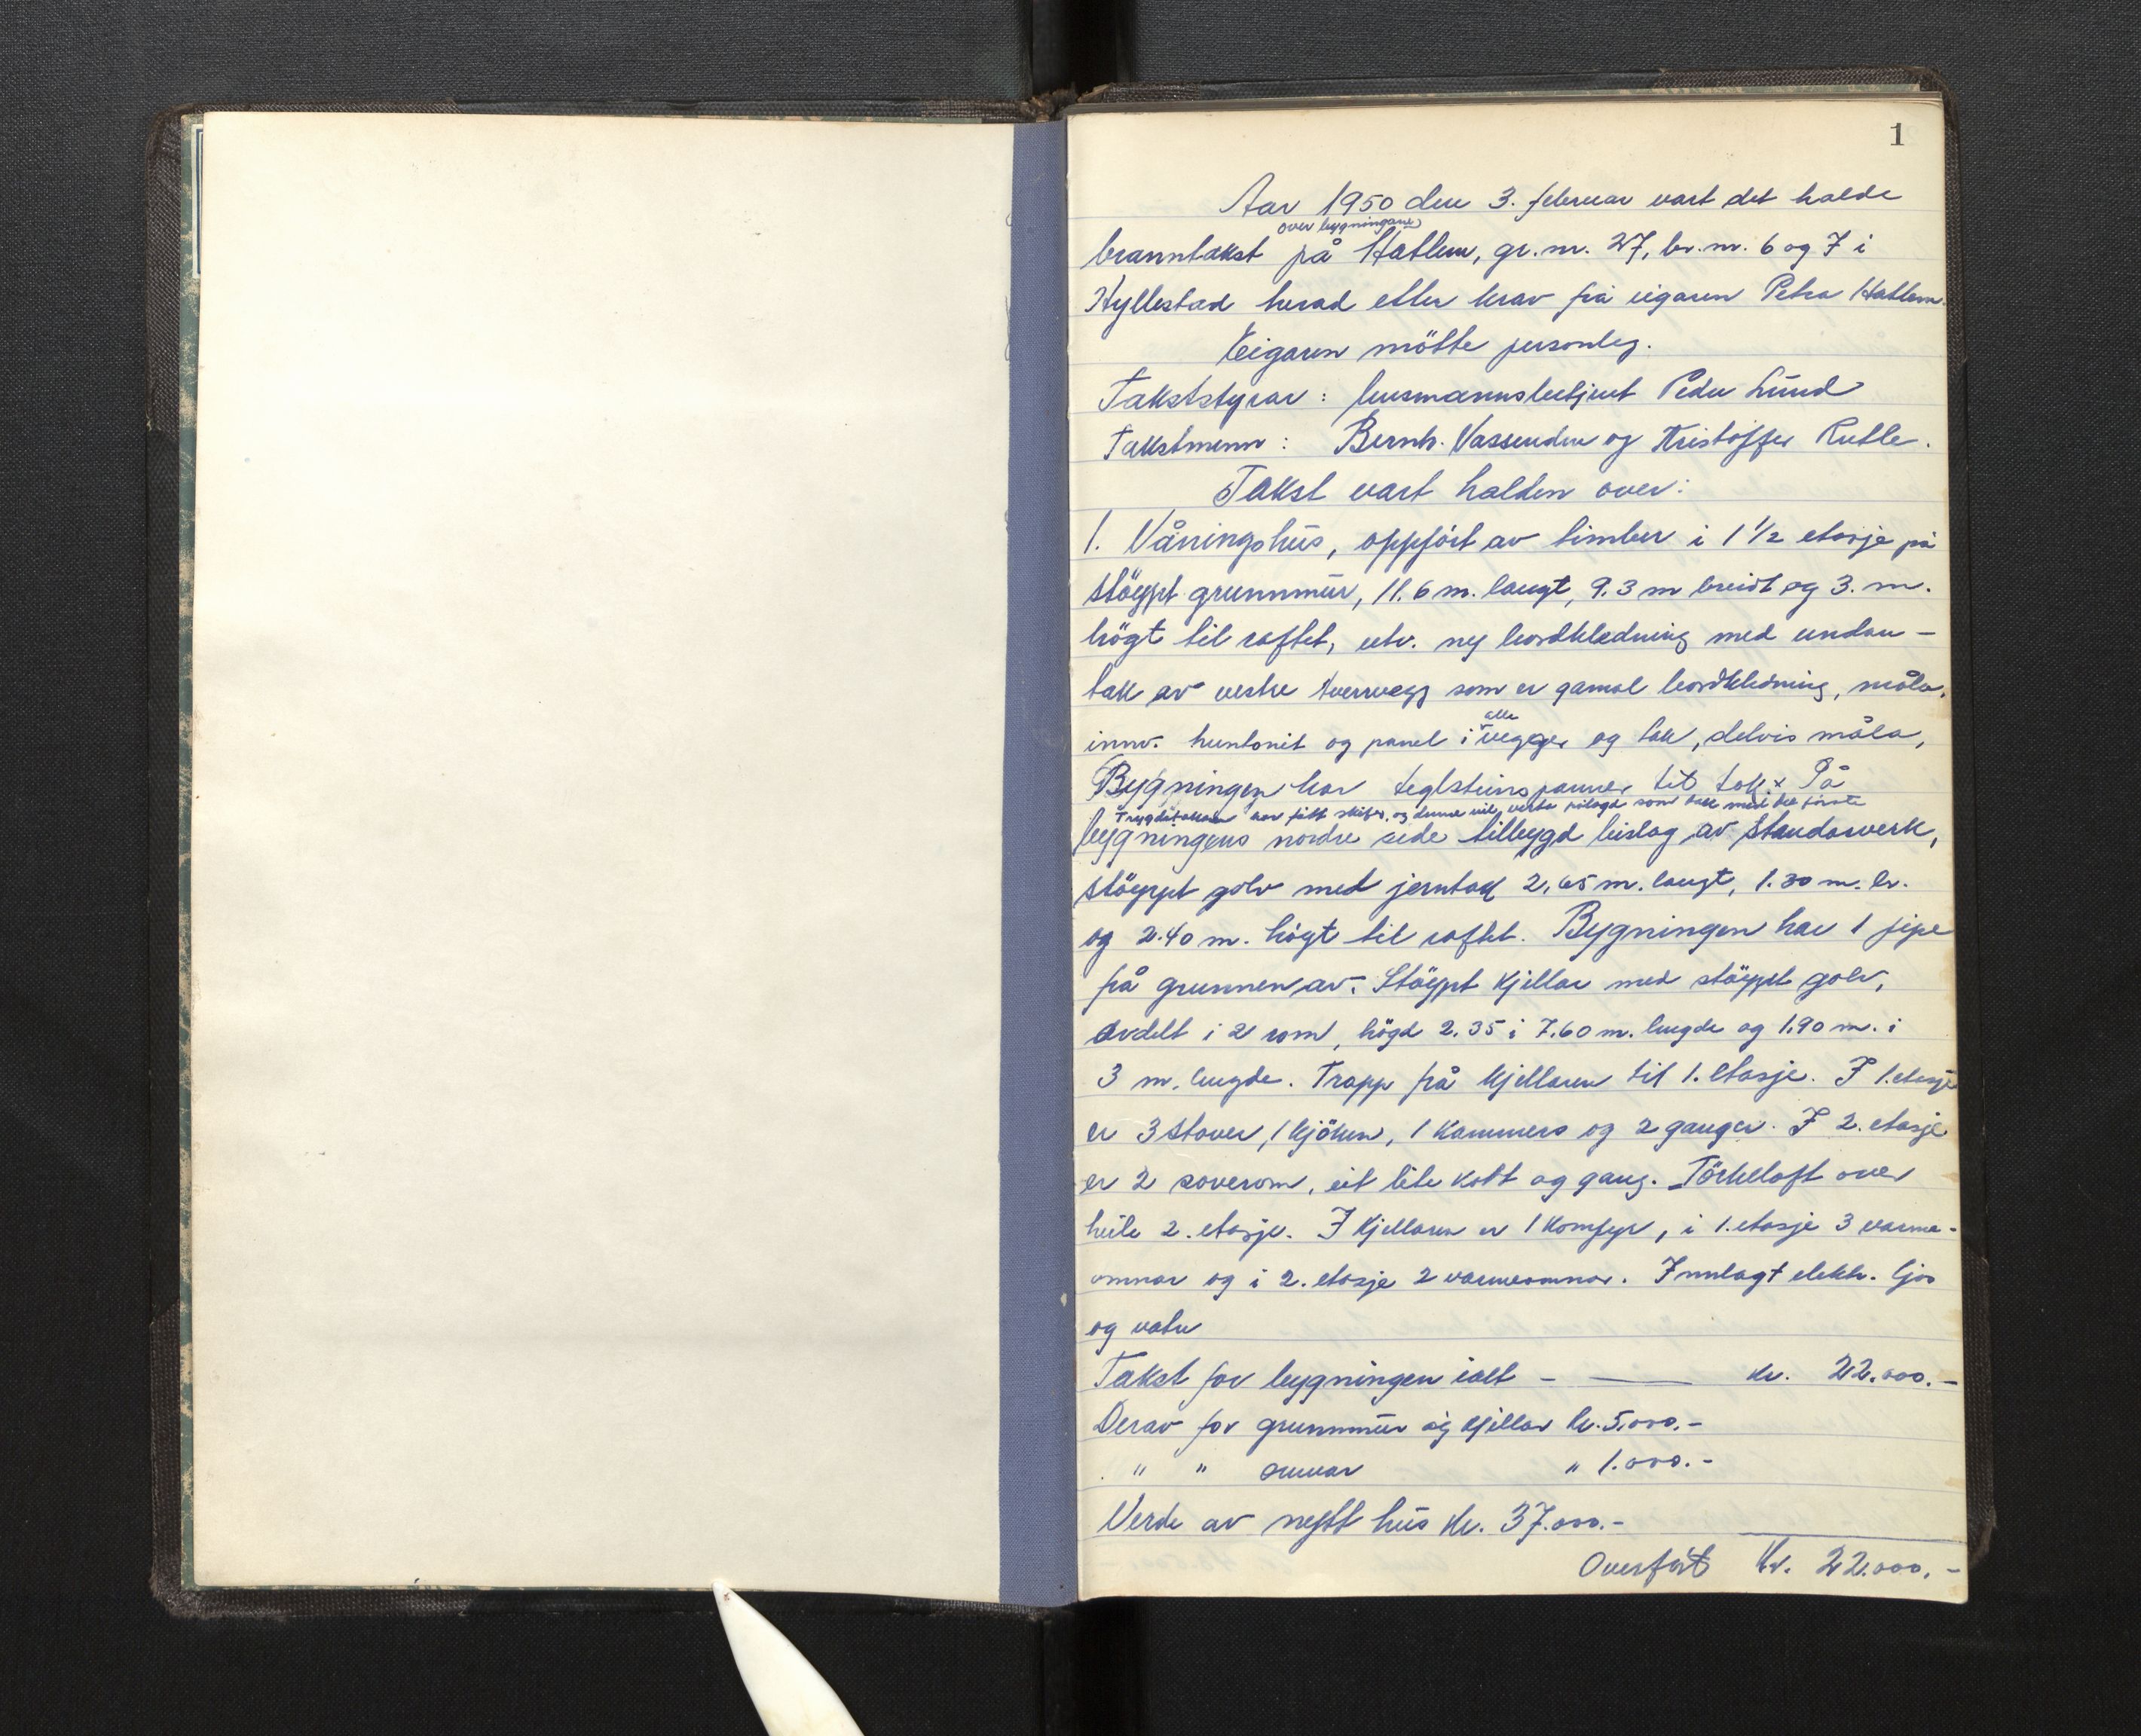 1
Aar 1950 den 3. februar vart det halde
over bygningane
branntakst på Hatlem, gr. nr. 27, br. nr. 6 og 7 i
Hyllestad herad etter krav frå eigaren Petra Hatlem.
Eigaren mötte personleg.
Takststyrar : lensmannsbetjent Peder Lund
Takstmenn : Bernh. Vassenden og Kristoffer Rutle.
Takst vart halden over:
1. Våningshus, oppfört av timber i 1 1/2 etasje på
stöypt grunnmur, 11.6 m. langt, 9.3 m breidt og 3. m.
högt til raftet, utv. ny bordkledning med undan-
tak av vestre tverrvegg som er gamal bordkledning, måla,
alle
innv. huntonit og panel i vegger og tak, delvis måla,
Bygningen har teglsteinspanner til tak. x På
har fått skifer, og denne vil verta pålagd som tak med det första
bygningens nordre side tilbygd bislag av standarverk,
stöypt golv med jerntak 2,65 m. langt, 1.30 m. br.
og 2.40 m. högt til raftet. Bygningen har 1 pipe
frå grunnen av. Stöypt kjellar med stöypt golv,
avdelt i 2 rom, högd 2.35 i 7.60 m. lengde og 1.90 m. i
3 m. lengde. Trapp frå kjellaren til 1. etasje. I 1. etasje
er 3 stover, 1 kjöken, 1 kammers og 2 ganger. I 2. etasje
er 2 soverom, eit lite kott og gang. Törkeloft over
heile 2. etasje. I kjellaren er 1 komfyr, i 1. etasje 3 varme-
omnar og i 2. etasje 2 varmeomnar. Innlagt elektr. ljos
og vatn
Takst for bygningen ialt - — kr. 22.000.-
Derav for grunnmur og kjellar kr. 5.000.-
" " omnar " 1.000.-
Verde av nytt hus kr. 37.000.-
Overfört Kr. 22.000.-